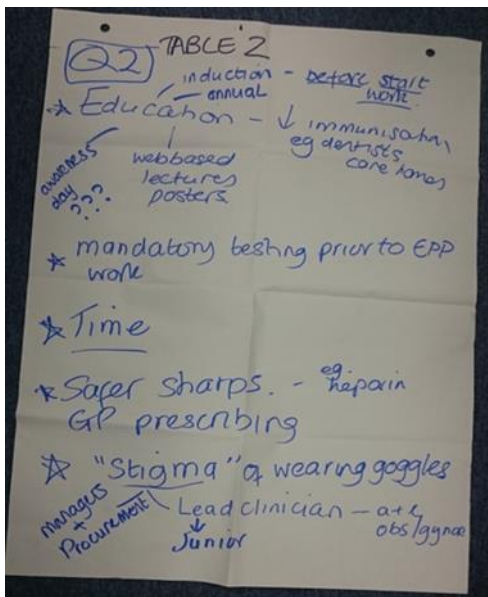 TABLE 2
Q2
induction - before start
work.
annual
* Education - ↓ immunisation
eg dentists
care homes
awareness
day
???
webbased
lectures
posters
* mandatory testing prior to EPP
work
* Time
* Safer sharps. - eg. heparin
GP prescribing
* "Stigma" of wearing goggles
managers
+
Procurement
Lead clinician - a+e
obs/gynae
↓
Junior